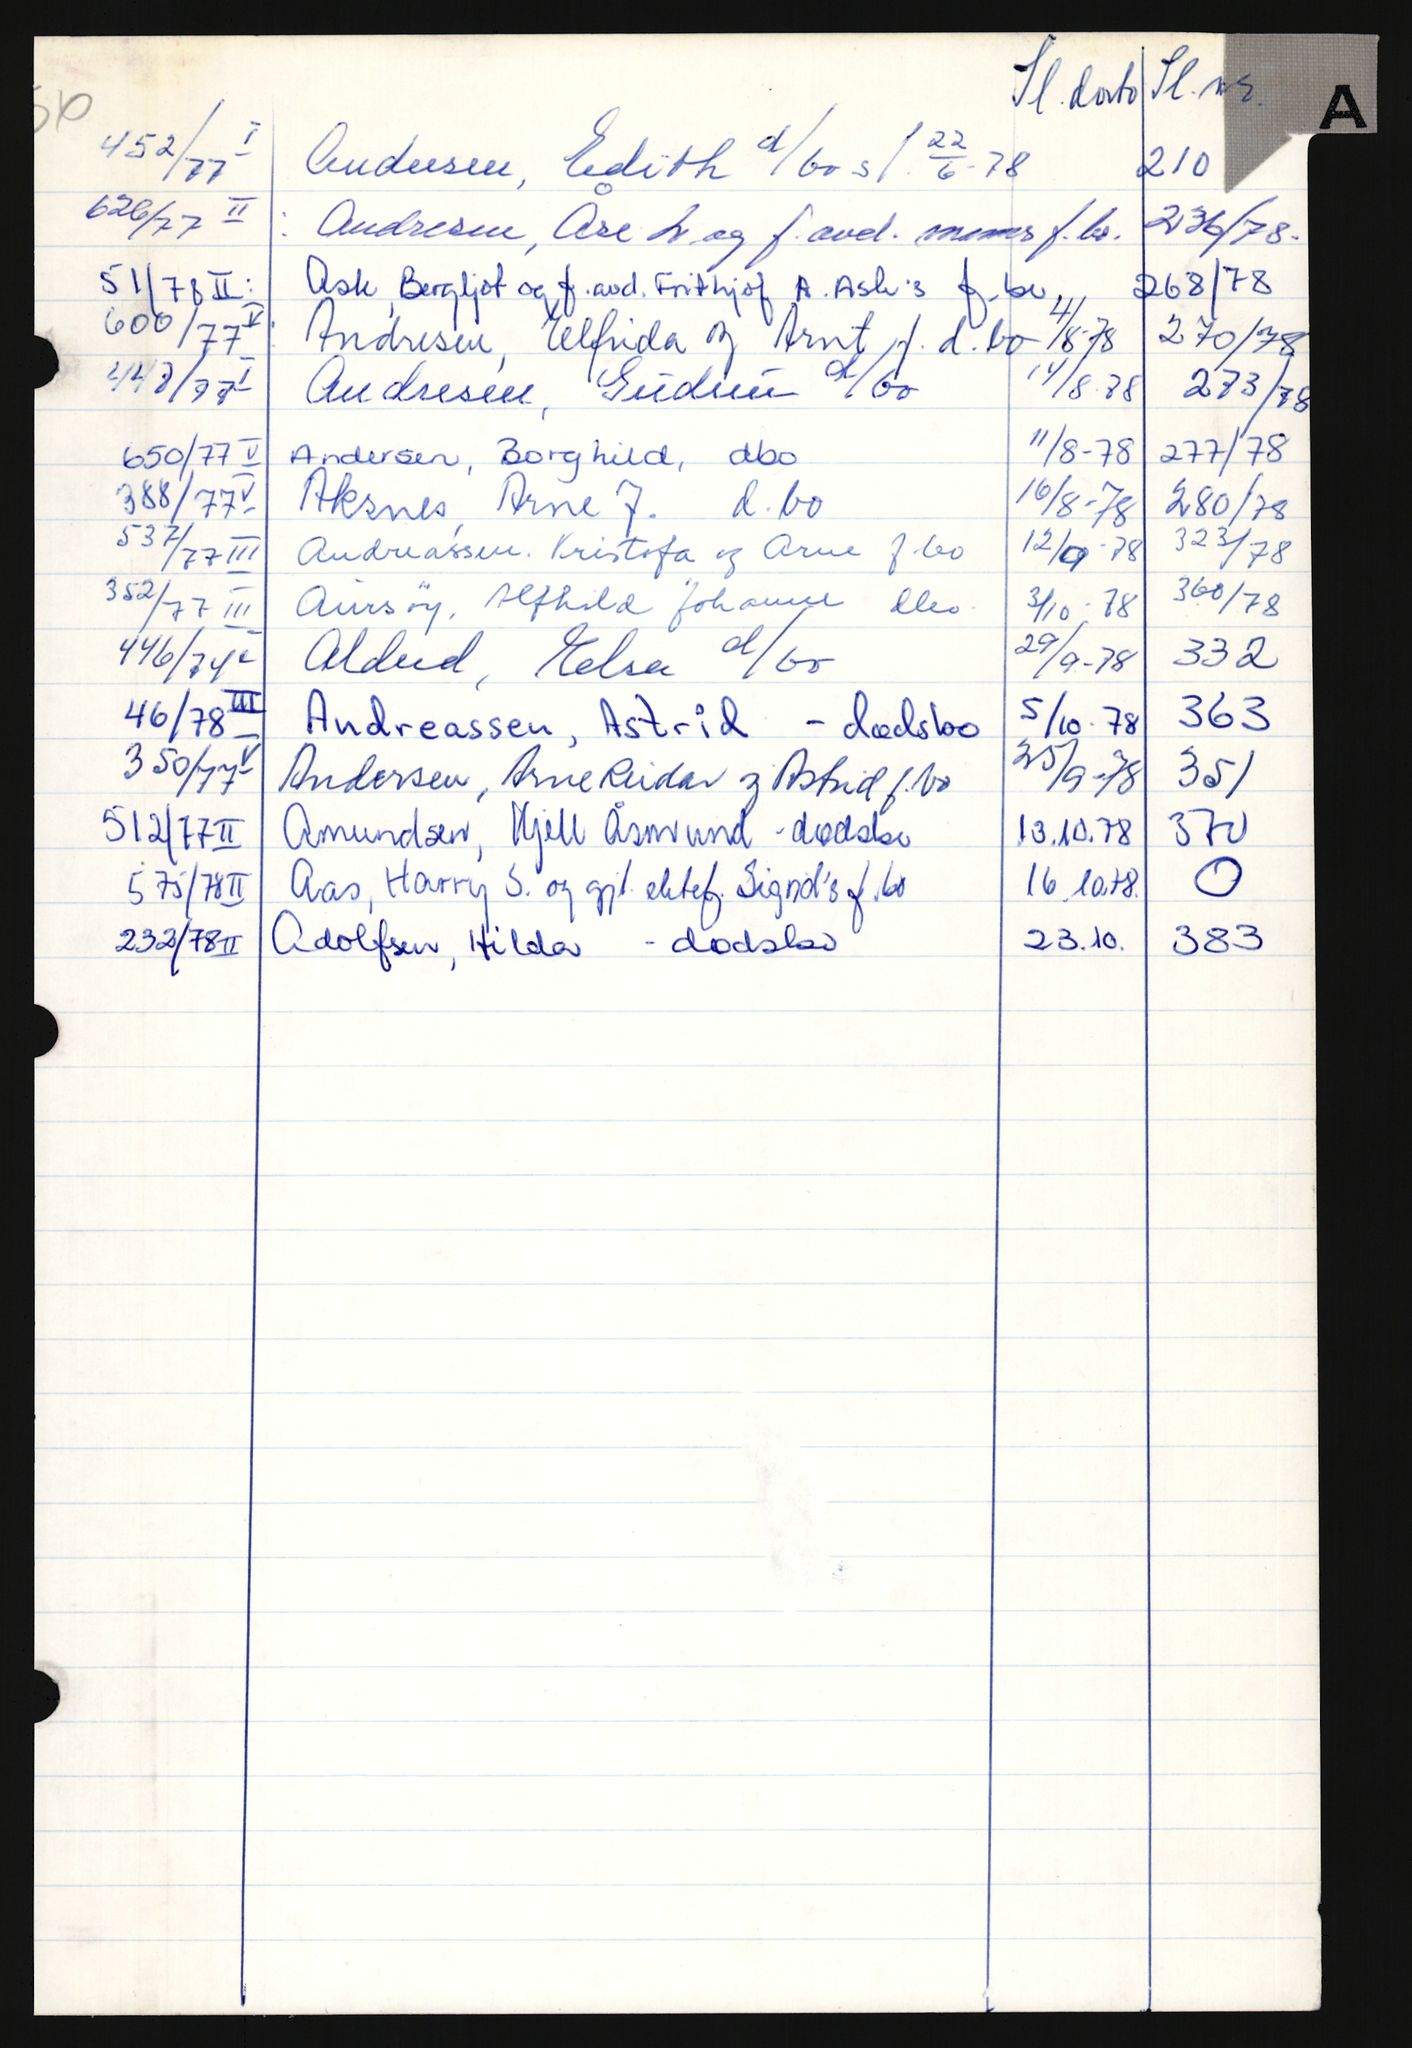 Sl. dato Sl. nr. A
452/77 I Andersen, Edith d/bo sl. 22/6-78 210
626/77 II : Andresen, Åse L og f. avd. manns f. bo. 236/78.
51/78 II: Ask, Bergljot og f. avd. Frithjof A. Ask's f. bo, 268/78
600/77 V : Andresen, Elfrida og Arnt f. d. bo 4/8-78 270/78
448/77 I Andresen, Gudrun d/bo 14/8-78 273/78
650/77 V Andersen, Borghild, dbo 11/8-78 277/78
388/77 V Aksnes, Arne J. d.bo 16/8-78 280/78
537/77 III Andreassen. Kristofa og Arne f bo 12/9-78 323/78
352/77 III Aursöy, Alfhild Johanne dbo. 3/10-78 360/78
446/74 Aldud, Elsa d/bo 29/9-78 332
46/78 III Andreassen, Astrid - dødsbo 5/10-78 363
350/77 V Andersen, Arne Reidar og Astrid f. bo 25/9-78 351
512/77 II Amundsen, Kjell Åsmund - dødsbo 13.10.78 370
575/78 II Aas, Harry S. og gjl. ektef. Signd's f. bo 16.10.78. 0
232/78 II Adolfsen, Hilda - dødsbo 23.10. 383